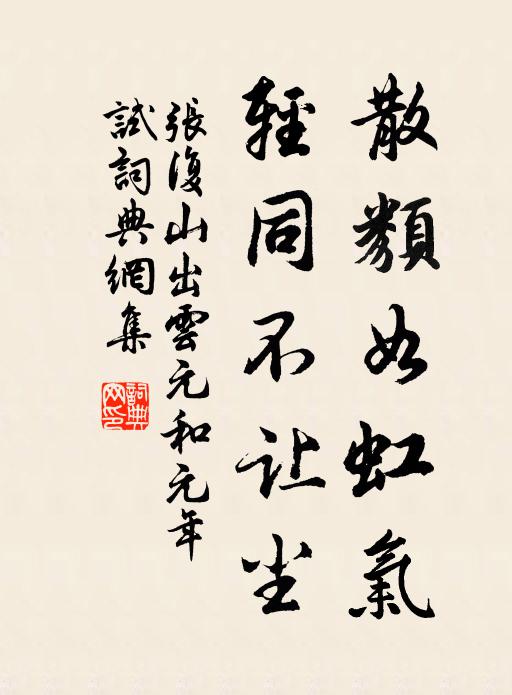 散類如虹氣
輕同不让尘
張復山出雲元和元年
試詞典網集
詞典网印